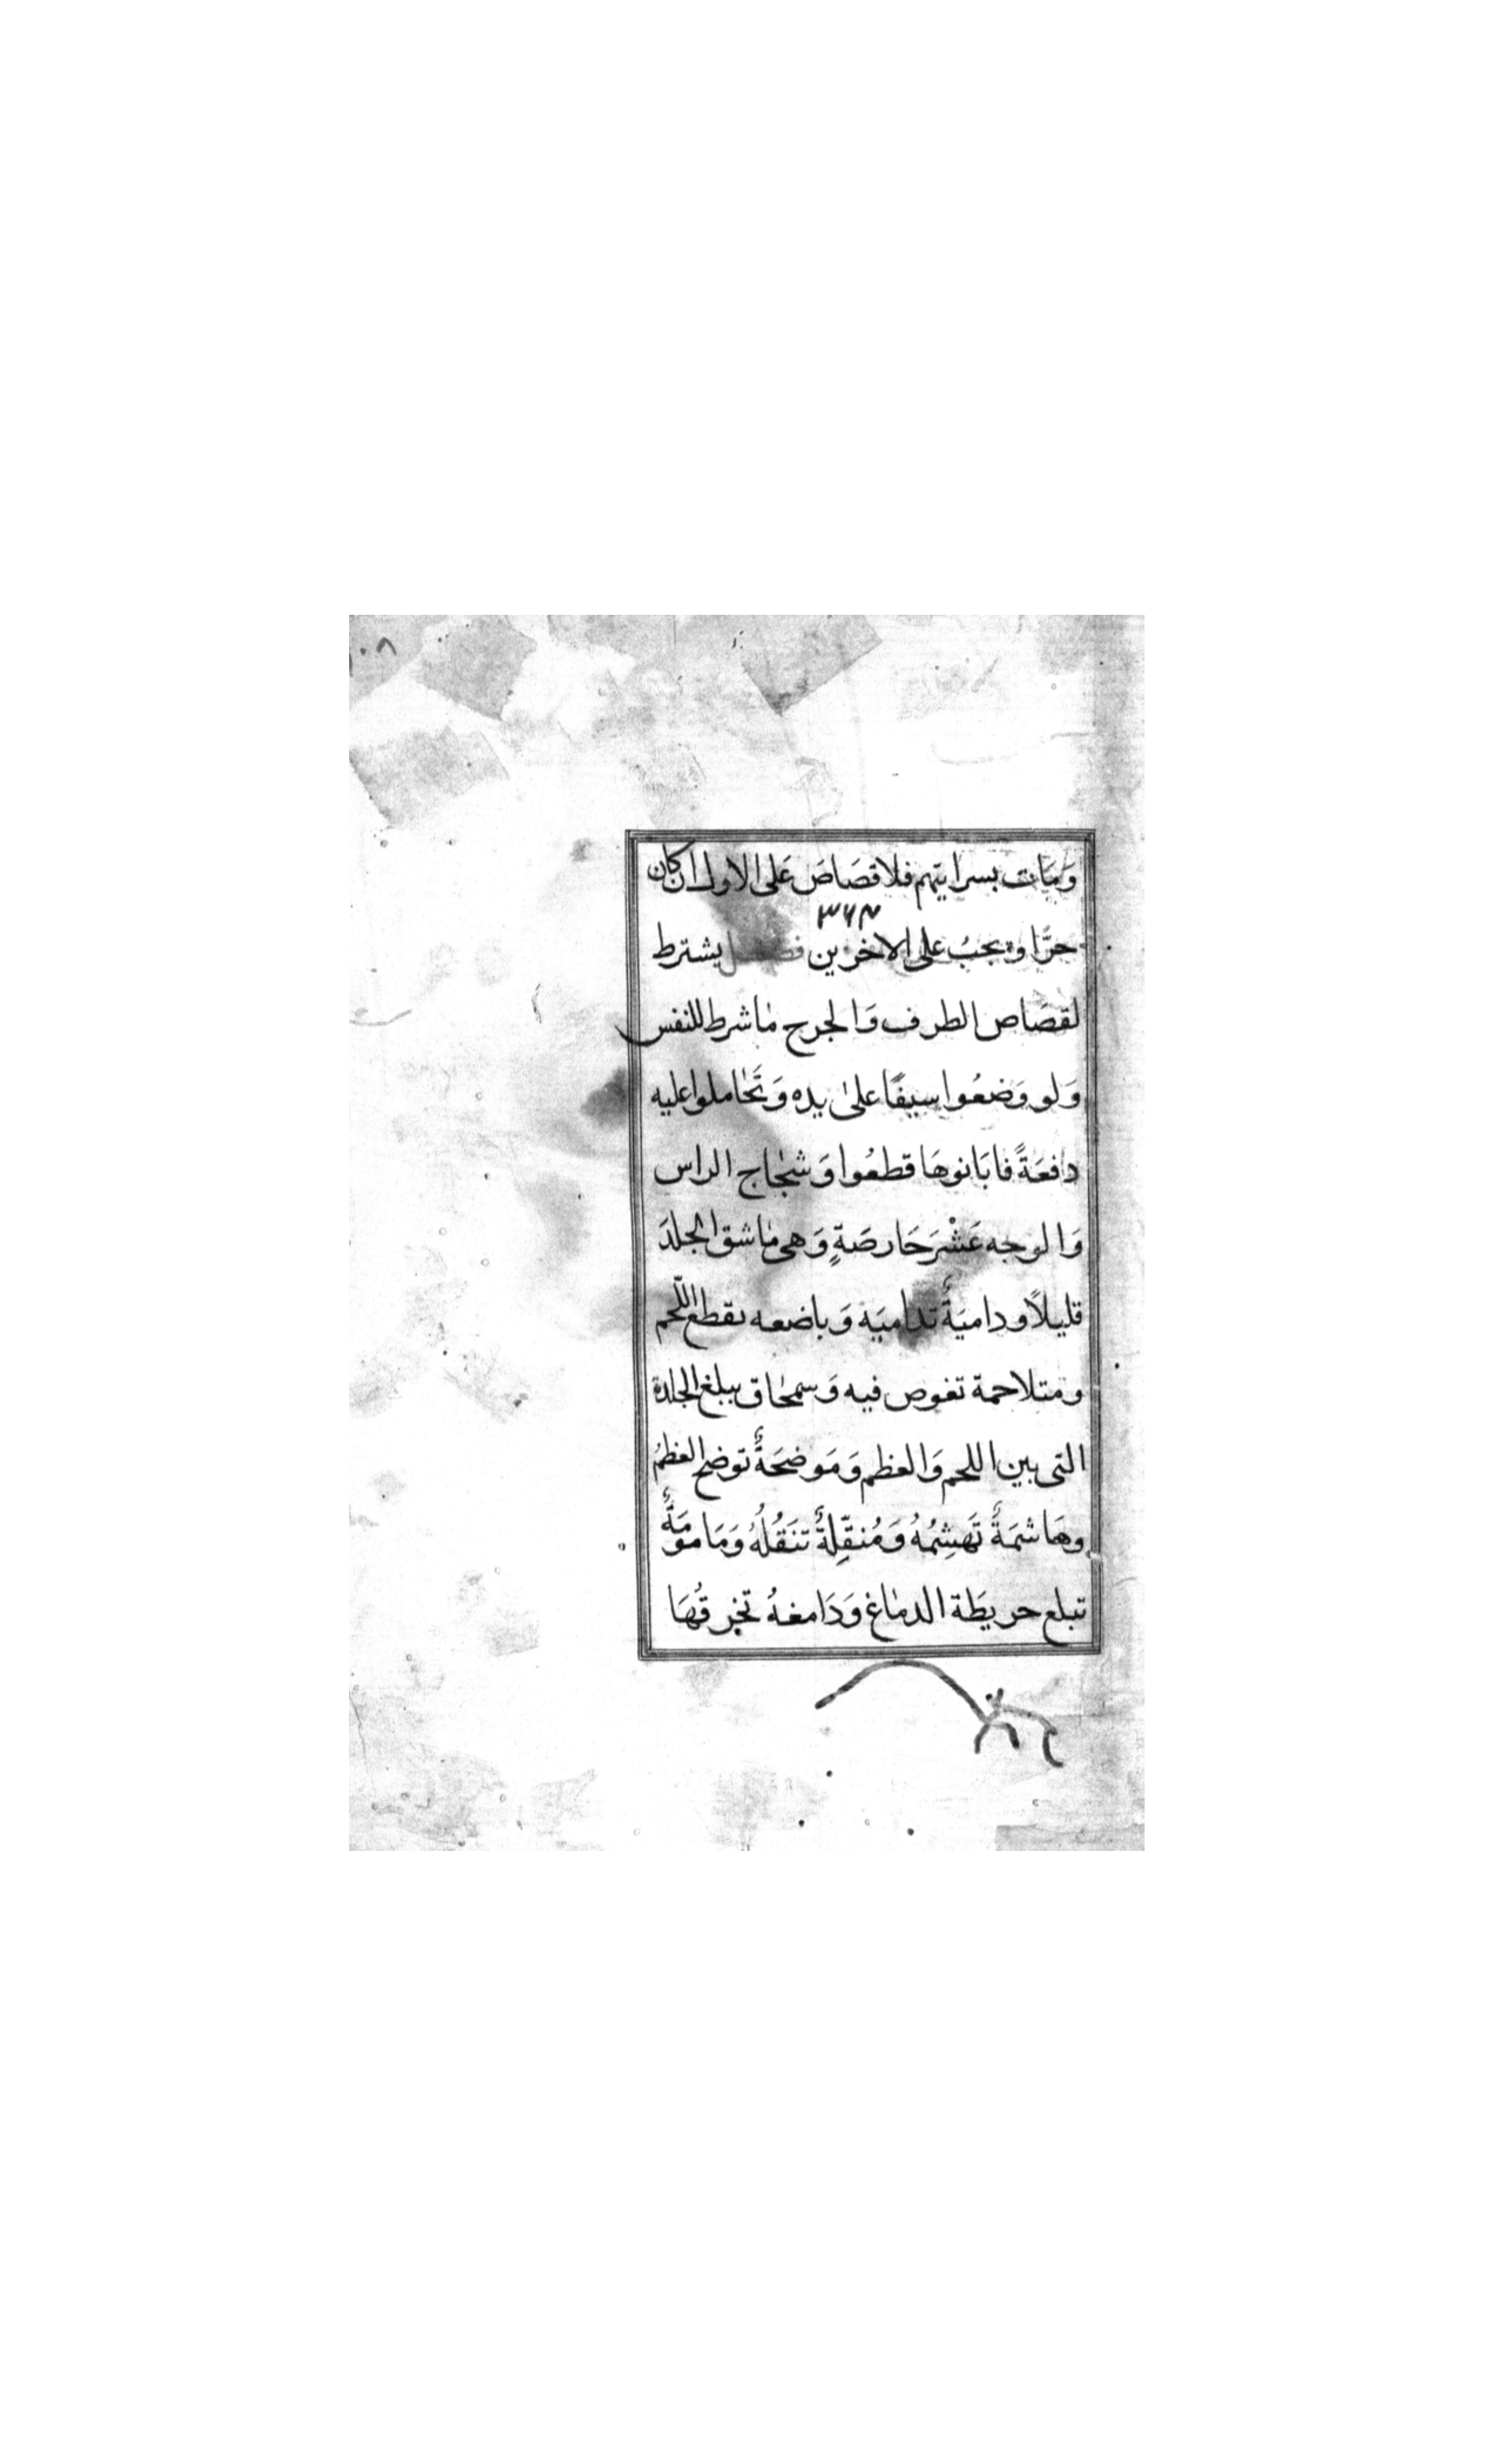 ١٠٨
وَمَات بسرايتهم فلا قصَاصَ عَلى الاول ان كان
٣٦٣
حرًّا ويجبُ على الاخرين فصل يشترط
لقصَاص الطرف وَالجرح ماشرط للنفس
وَلو وَضعُوا سيفًا على يده وَتحَاملوا عليه
دافعَةً فابَانوهَا قطعُوا وَشجاج الراس
وَالوجه عَشْرَ حَارصَةٍ وَهى ماشق الجلدَ
قليلاً وداميَةٌ تداميَة وَباضعه تقطع اللّحم
ومتلاحمة تغوص فيه وَسمحاق يبلغ الجلدة
التى بين اللحم وَالعظم وَمَوضحَةٌ توضح العظمُ
وهَاشمَةٌ تَهَشِمُهُ وَمُنقِّلةٌ تنَقُلُهُ وَمَامومَةٌ
تبلع حريطَة الدماغ وَدَامغهُ تخرقُهَا